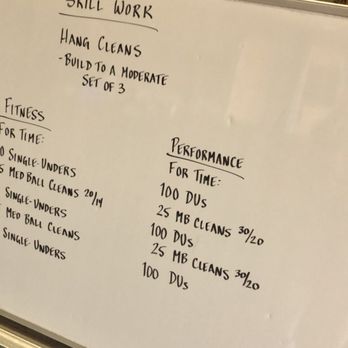 SKILL WORK
HANG CLEANS
- BUILD TO A MODERATE
SET OF 3
FITNESS
FOR TIME:
SINGLE-UNDERS
MED BALL CLEANS 20/14
SINGLE-UNDERS
MED BALL CLEANS
SINGLE UNDERS
PERFORMANCE
FOR TIME:
100 DUs
25 MB CLEANS 30/20
100 DUs
25 MB CLEANS 30/20
100 DUs